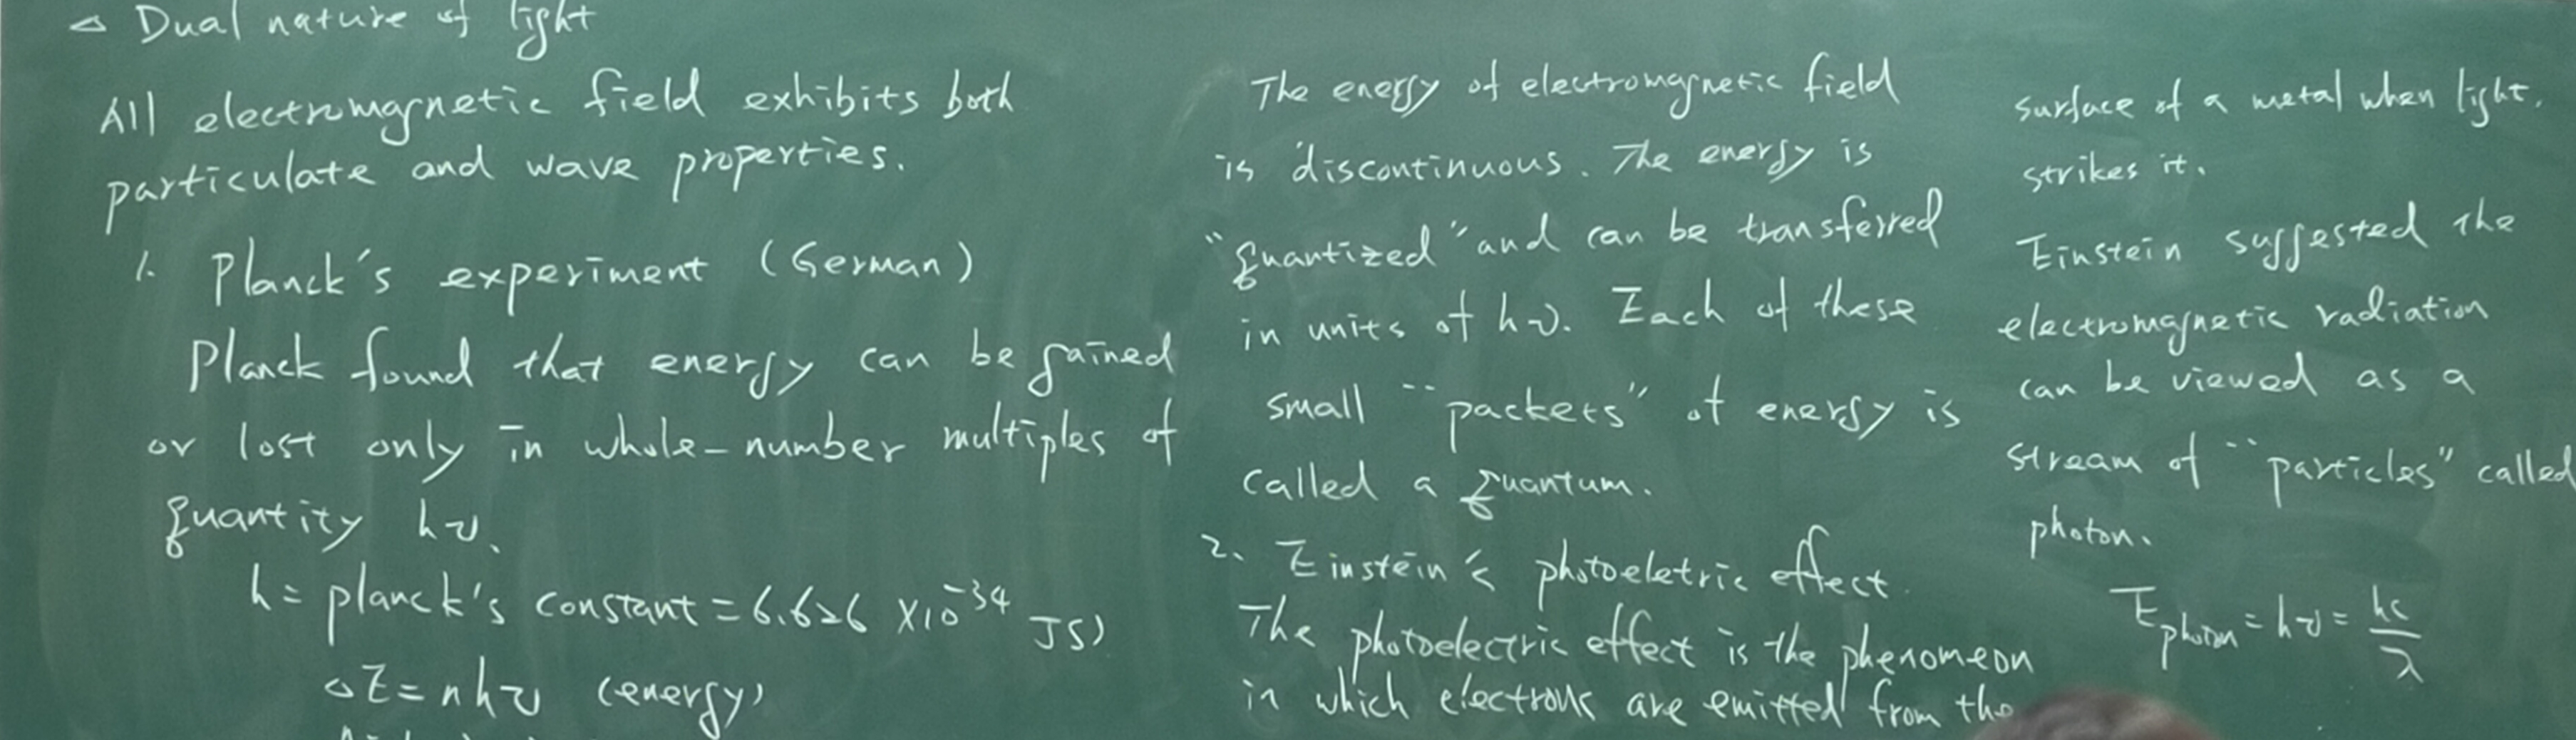 △ Dual nature of light
All electromagnetic field exhibits both
particulate and wave properties.
1. Planck's experiment (German)
Planck found that energy can be gained
or lost only in whole-number multiples of
quantity hν.
h = planck's constant = 6.626 ×10⁻³⁴ JS)
△E = nhν (energy)
The energy of electromagnetic field
is discontinuous. The energy is
"quantized" and can be transferred
in units of hν. Each of these
small "packets" of energy is
called a quantum.
2. Einstein's photoeletric effect.
The photoelectric effect is the phenomeon
in which electrons are emitted from the
surface of a metal when light.
strikes it.
Einstein suggested the
electromagnetic radiation
can be viewed as a
stream of "particles" called
photon.
E photon = hν = hc/λ